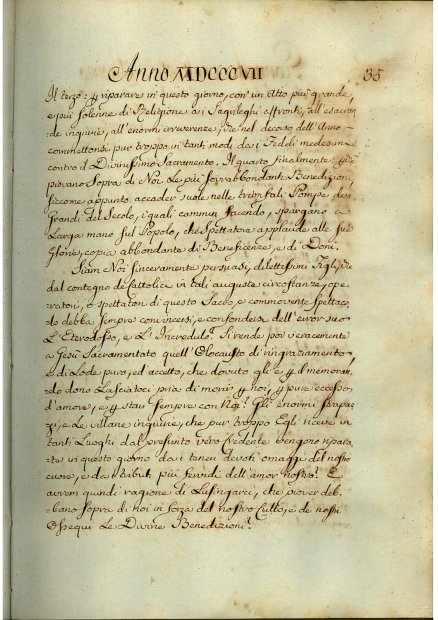 Anno MDCCCVII 35
Il terzo: p riparare in questo giorno, con un Atto più grande,
e più solenne di Religione a i Sagrileghi affronti, all'esacran
de ingiurie, all'enormi irriverenze, che nel decorso dell'Anno
commettonsi pur troppo in tanti modi da i Fedeli medesimi
contro il Divinissimo Sacramento. Il quarto finalmente:
piovano sopra di Noi Le più sovrabbondanti Benedizioni,
siccome appunto accader suole nelle trionfali Pompe dei
Grandi del Secolo, i quali cammin facendo, spargano a
Larga mano sul Popolo, che spettatore applaude alle sue
Glorie, copia abbondante di Beneficenze, e di Doni.
Siam Noi sinceramente persuasi, dilettissimi Figli, che
dal contegno de Cattolici in tali auguste circostanze, ope-
ratori, o spettatori di questo Sacro, e commovente spettaco
lo debba sempre convincersi, e confondersi dell'error suo
L'Eterodosso, e L'Incredulo. Si rende poi veracemente
a Gesù Sacramentato quell'Olocausto di ringraziamento,
e di Lode puro, ed accetto, che dovuto gli è p il memoran
do dono Lasciatoci pria di morir p noi, p puro eccesso
d'amore, e p star sempre con Noi. Gli enormi strapaz
zi, e Le villane ingiurie, che pur troppo Egli riceve in
tanti Luoghi dal presunto vero Credente vengono ripara-
te in questo giorno da i teneri devoti omaggi del nostro
cuore, e da i tributi più fervidi dell'amor nostro. E
avrem quindi ragione di Lusingarci, che piover deb-
bano sopra di noi in forza del nostro Culto, e de nostri
Ossequi Le Divine Benedizioni.